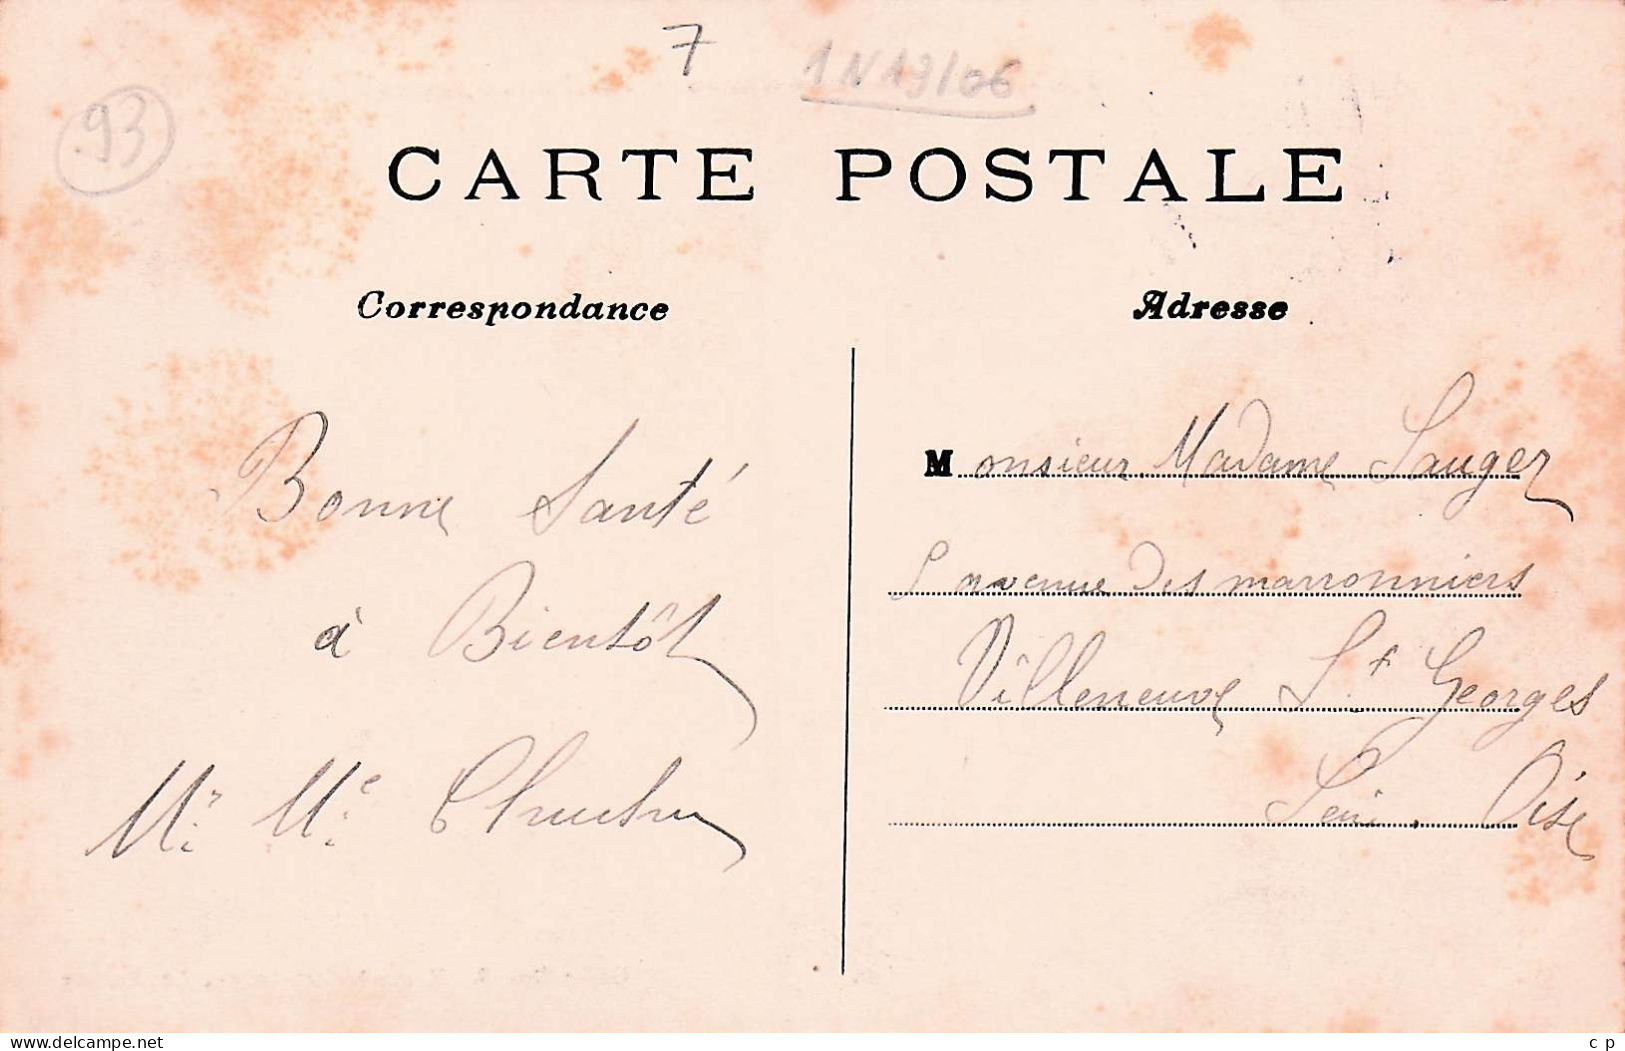 7
1N19/06
93
CARTE POSTALE
Correspondance
Adresse
Bonne Santé
à Bientôt
Mr. Me.
Monsieur Madame Sauger
avenue des marronniers
Villeneuve St. Georges
Seine. Oise
www.delcampe.net
c p